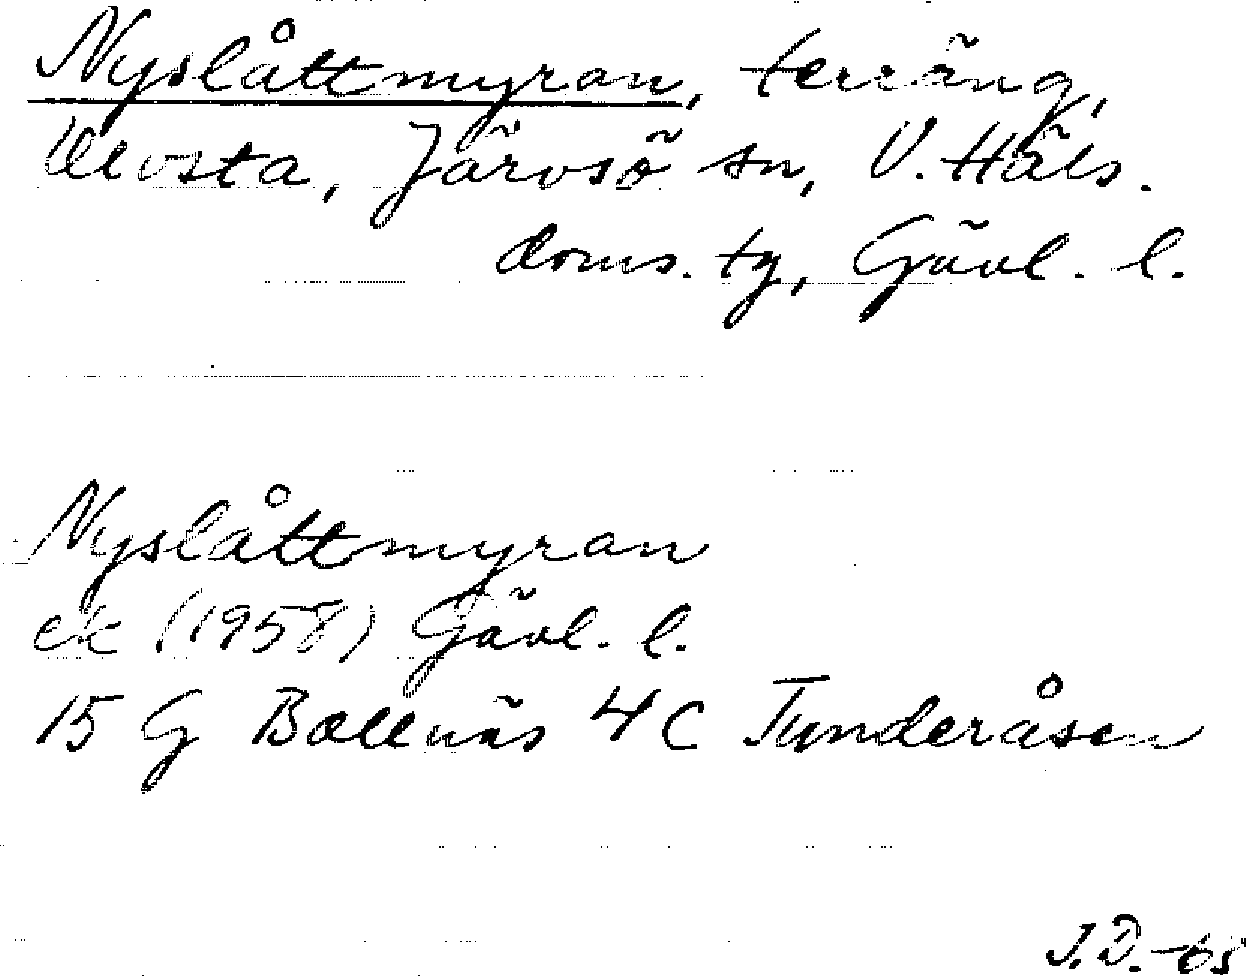 Nyslåttmyran, terräng,
Ulvsta, Järvsö sn, V. Häls.
doms. tg, Gävl. l.
Nyslåttmyran
ek (1958) Gävl. l.
15 G Bollnäs 4 C Tunderåsen
J.D. -65